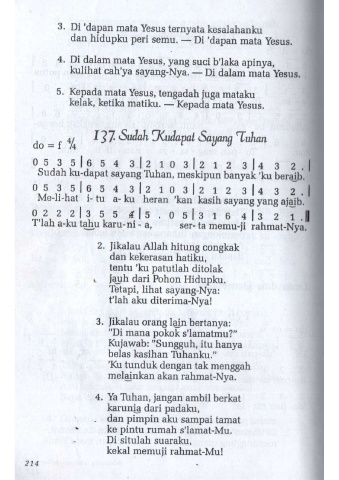 3. Di 'dapan mata Yesus ternyata kesalahanku
dan hidupku peri semu. — Di 'dapan mata Yesus.
4. Di dalam mata Yesus, yang suci b'laka apinya,
kulihat cah'ya sayang-Nya. — Di dalam mata Yesus.
5. Kepada mata Yesus, tengadah juga mataku
kelak, ketika matiku. — Kepada mata Yesus.
137. Sudah Kudapat Sayang Tuhan
do = f 4/4
0 5 3 5 | 6 5 4 3 | 2 1 0 3 | 2 1 2 3 | 4 3 2 . |
Sudah ku-dapat sayang Tuhan, meskipun banyak 'ku beraib.
0 5 3 5 | 6 5 4 3 | 2 1 0 3 | 2 1 2 3 | 4 3 2 . |
Me-li-hat i-tu a-ku heran 'kan kasih sayang yang ajaib.
0 2 2 2 | 3 5 5 4 | 5 . 0 5 | 3 1 6 4 | 3 2 1 . ||
T'lah a-ku tahu karu-ni-a, ser-ta memu-ji rahmat-Nya.
2. Jikalau Allah hitung congkak
dan kekerasan hatiku,
tentu 'ku patutlah ditolak
jauh dari Pohon Hidupku.
Tetapi, lihat sayang-Nya:
t'lah aku diterima-Nya!
3. Jikalau orang lain bertanya:
"Di mana pokok s'lamatmu?"
Kujawab: "Sungguh, itu hanya
belas kasihan Tuhanku."
'Ku tunduk dengan tak menggah
melainkan akan rahmat-Nya.
4. Ya Tuhan, jangan ambil berkat
karunia dari padaku,
dan pimpin aku sampai tamat
ke pintu rumah s'lamat-Mu.
Di situlah suaraku,
kekal memuji rahmat-Mu!
214